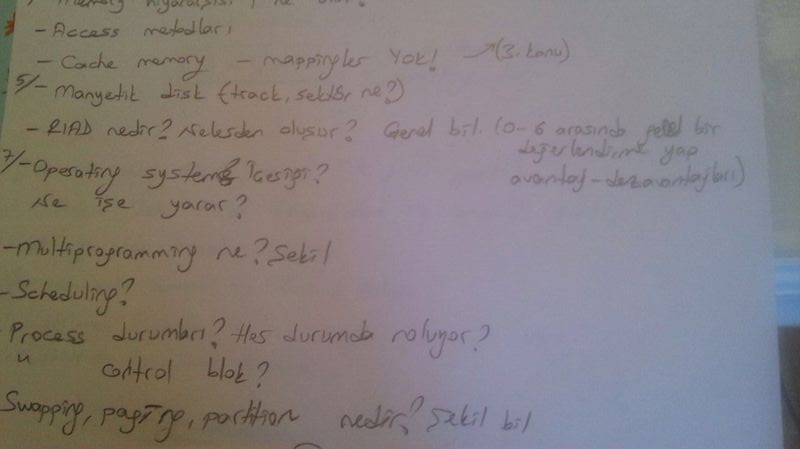 memory hiyararşisi? ne
- Access metodları
- Cache memory - mappingler Yok! → (3. konu)
5/- Manyetik disk (track, sektör ne?)
- RIAD nedir? Nelerden oluşur? Genel bil. (0-6 arasında genel bir
değerlendirme yap
avantaj-dezavantajları)
7/- Operating system? İçeriği?
Ne işe yarar?
- Multiprogramming ne? Şekil
- Scheduling?
Process durumları? Her durumda noluyor?
" control blok?
Swapping, paging, partition nedir? Şekil bil